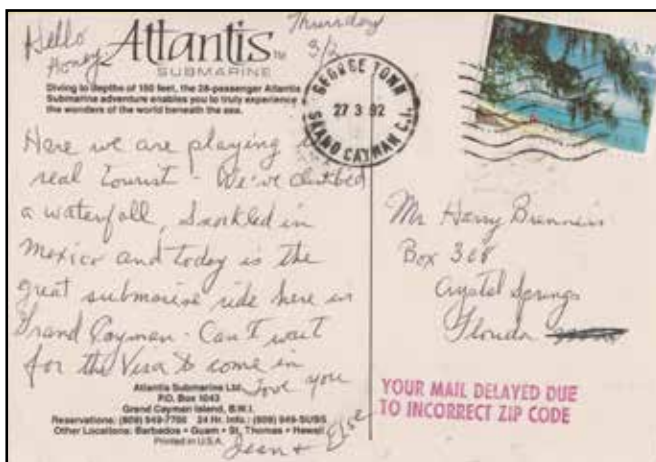 Hello
Honey
Thursday
3/2
Atlantis™
SUBMARINE
Diving to depths of 150 feet, the 28-passenger Atlantis
Submarine adventure enables you to truly experience
the wonders of the world beneath the sea.
GEORGE TOWN
27 3 92
GRAND CAYMAN C.I.
Here we are playing
real tourist - We've climbed
a waterfall, snorkled in
Mexico and today is the
great submarine ride here in
Grand Cayman - Can't wait
for the Visa to come in
Love you
Jean + Else
Atlantis Submarine Ltd.
P.O. Box 1043
Grand Cayman Island, B.W.I.
Reservations: (809) 949-7700 24 Hr. Info.: (809) 949-SUBS
Other Locations: Barbados • Guam • St. Thomas • Hawaii
Printed in U.S.A.
Mr Harry
Box 308
Crystal Springs
Florida
YOUR MAIL DELAYED DUE
TO INCORRECT ZIP CODE